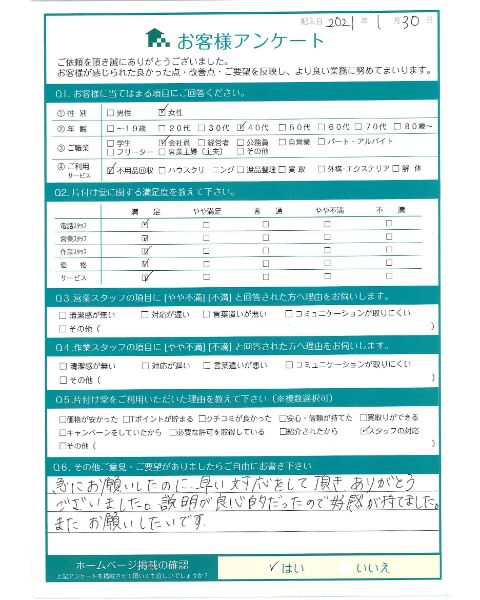 記入日 2021 年 1 月 30 日
お客様アンケート
ご依頼を頂き誠にありがとうございました。
お客様が感じられた良かった点・改善点・ご要望を反映し、より良い業務に努めてまいります。
Q1. お客様に当てはまる項目にご回答ください。
① 性 別 □男性 ☑女性
② 年 齢 □〜19歳 □20代 □30代 ☑40代 □50代 □60代 □70代 □80歳〜
③ ご職業 □学生 ☑会社員 □経営者 □公務員 □自営業 □パート・アルバイト
□フリーター □専業主婦(主夫) □その他
④ ご利用サービス ☑不用品回収 □ハウスクリーニング □遺品整理 □買取 □外構・エクステリア □解体
Q2. 片付け堂に関する満足度を教えて下さい。
満 足 やや満足 普 通 やや不満 不 満
電話スタッフ ☑ □ □ □ □
営業スタッフ ☑ □ □ □ □
作業スタッフ ☑ □ □ □ □
価 格 ☑ □ □ □ □
サービス ☑ □ □ □ □
Q3. 営業スタッフの項目に [やや不満] [不満] と回答された方へ理由をお伺いします。
□清潔感が無い □対応が遅い □言葉遣いが悪い □コミュニケーションが取りにくい
□その他( )
Q4. 作業スタッフの項目に [やや不満] [不満] と回答された方へ理由をお伺いします。
□清潔感が無い □対応が遅い □言葉遣いが悪い □コミュニケーションが取りにくい
□その他( )
Q5. 片付け堂をご利用いただいた理由を教えて下さい(※複数選択可)
□価格が安かった □Tポイントが貯まる □クチコミが良かった □安心・信頼が持てた □買取りができる
□キャンペーンをしていたから □必要な許可を取得している □紹介されたから ☑スタッフの対応
□その他( )
Q6. その他ご意見・ご要望がありましたらご自由にお書き下さい
急にお願いしたのに、早い対応をして頂きありがとう
ございました。説明が良心的だったので好感が持てました。
またお願いしたいです。
ホームページ掲載の確認 ✓はい いいえ
上記アンケートを掲載させて頂いても宜しいでしょうか?